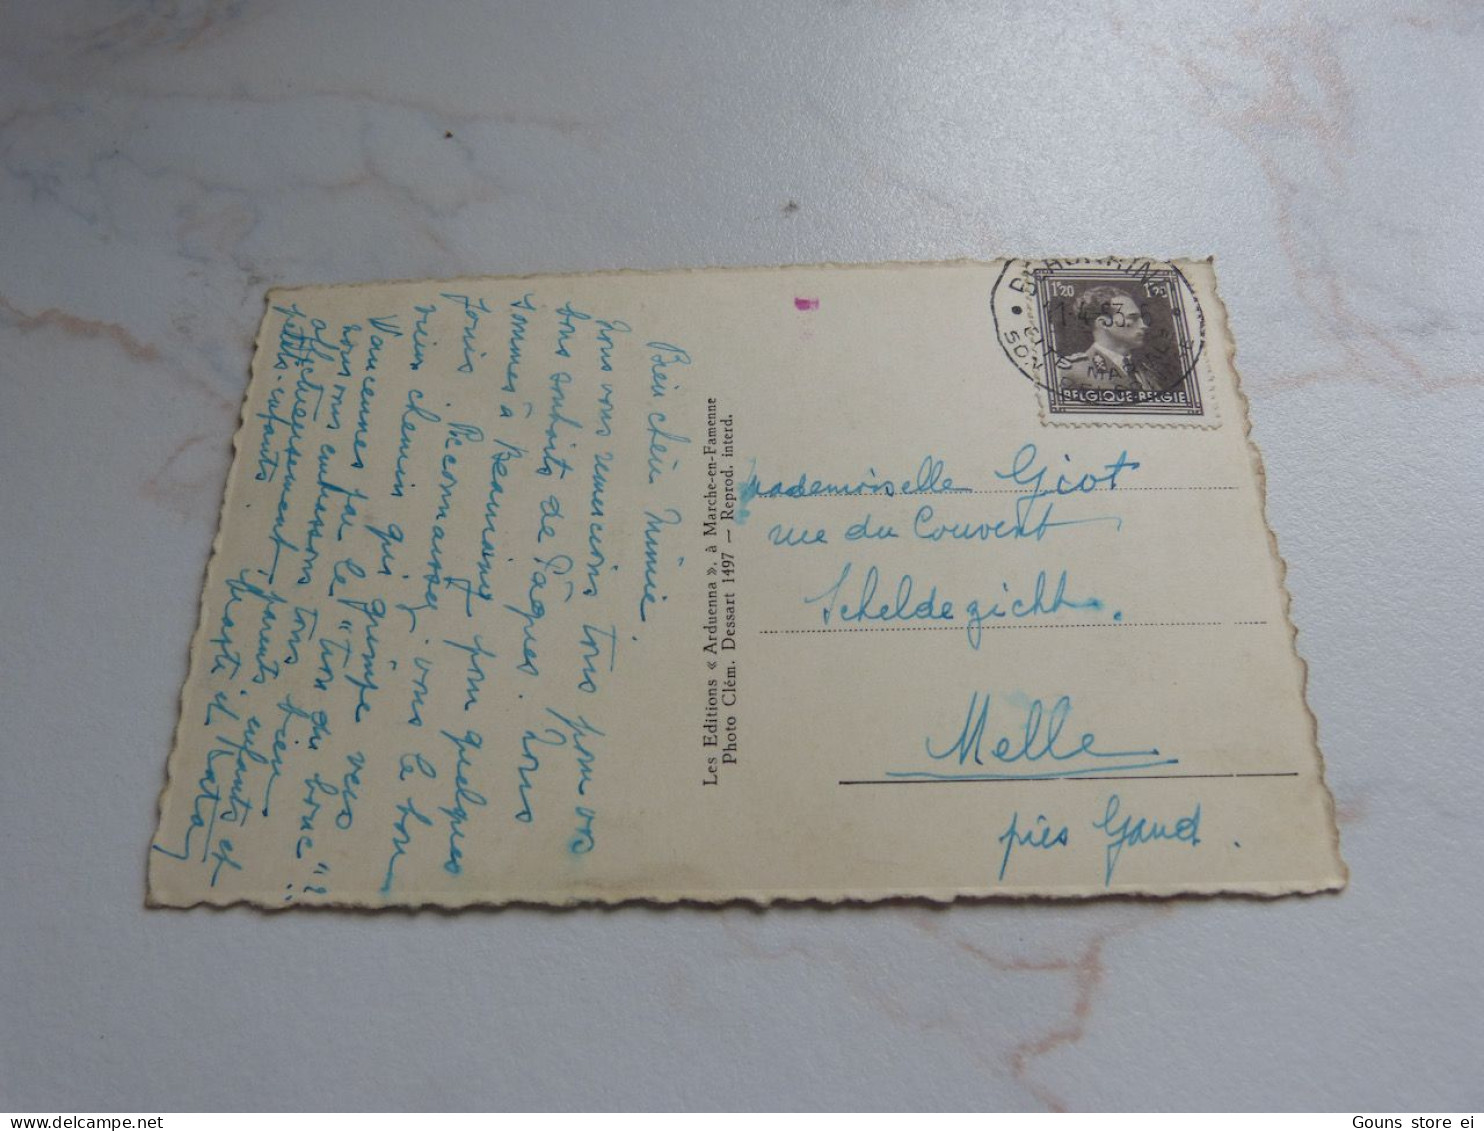 Bien chère Mimie.
Nous vous remercions tous pour vos
bons souhaits de Pâques. Nous
sommes à Beauraing pour quelques
jours. Reconnaissez vous le bon
vieux chemin qui grimpe vers
Vonecennes par le "trou du bouc"?
nous vous embrassons tous bien
affectueusement parents enfants et
petits-enfants
Les Editions « Arduenna », à Marche-en-Famenne
Photo Clém. Dessart 1497 — Reprod. interd.
BEAURAING
1-4 53
1F20 1F20
BELGIQUE-BELGIE
Mademoiselle Giot
rue du Couvent
Scheldezicht.
Melle
près Gand.
Gouns store ei